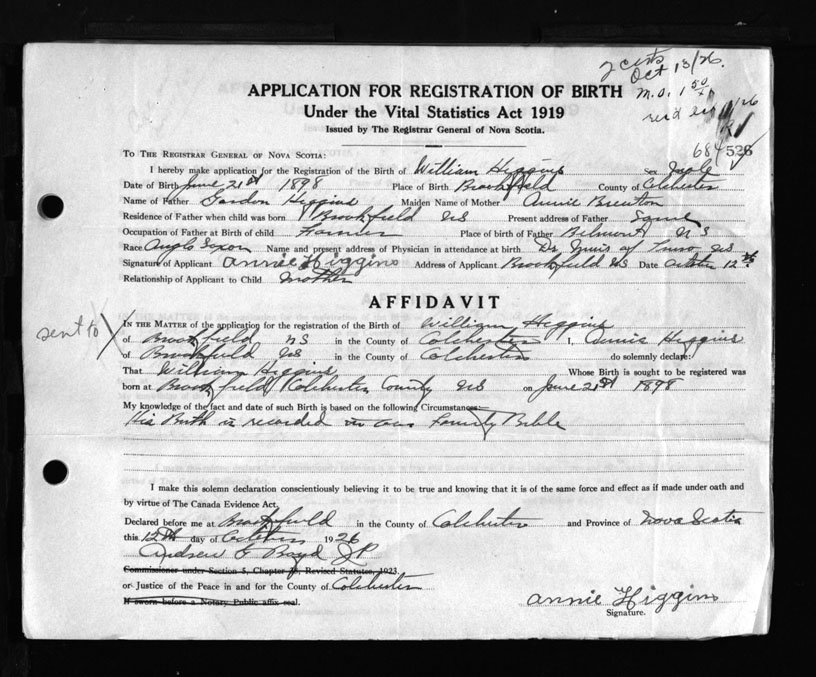 2 certs
Oct 13/26.
M.O. 1.50
APPLICATION FOR REGISTRATION OF BIRTH
Under the Vital Statistics Act 1919
Issued by The Registrar General of Nova Scotia.
684 526
TO THE REGISTRAR GENERAL OF NOVA SCOTIA:
I hereby make application for the Registration of the Birth of William Higgins Sex Male
Date of Birth June 21st 1898 Place of Birth Brookfield County of Colchester
Name of Father Gordon Higgins Maiden Name of Mother Annie Brenton
Residence of Father when child was born Brookfield NS Present address of Father Same
Occupation of Father at Birth of child Farmer Place of birth of Father Belmont N S
Race Anglo Saxon Name and present address of Physician in attendance at birth Dr Muir of Truro NS
Signature of Applicant Annie Higgins Address of Applicant Brookfield NS Date October 12th
Relationship of Applicant to Child Mother
AFFIDAVIT
sent to X
IN THE MATTER of the application for the registration of the Birth of William Higgins
of Brookfield NS in the County of Colchester I, Annie Higgins
of Brookfield NS in the County of Colchester do solemnly declare:
That William Higgins Whose Birth is sought to be registered was
born at Brookfield Colchester County NS on June 21st 1898
My knowledge of the fact and date of such Birth is based on the following Circumstances:
His Birth is recorded in our Family Bible
I make this solemn declaration conscientiously believing it to be true and knowing that it is of the same force and effect as if made under oath and
by virtue of The Canada Evidence Act.
Declared before me at Brookfield in the County of Colchester and Province of Nova Scotia
this 12th day of October 1926
Andrew F Boyd JP
Commissioner under Section 5, Chapter Revised Statutes, 1923
or Justice of the Peace in and for the County of Colchester
If sworn before a Notary Public affix seal.
Annie Higgins
Signature.